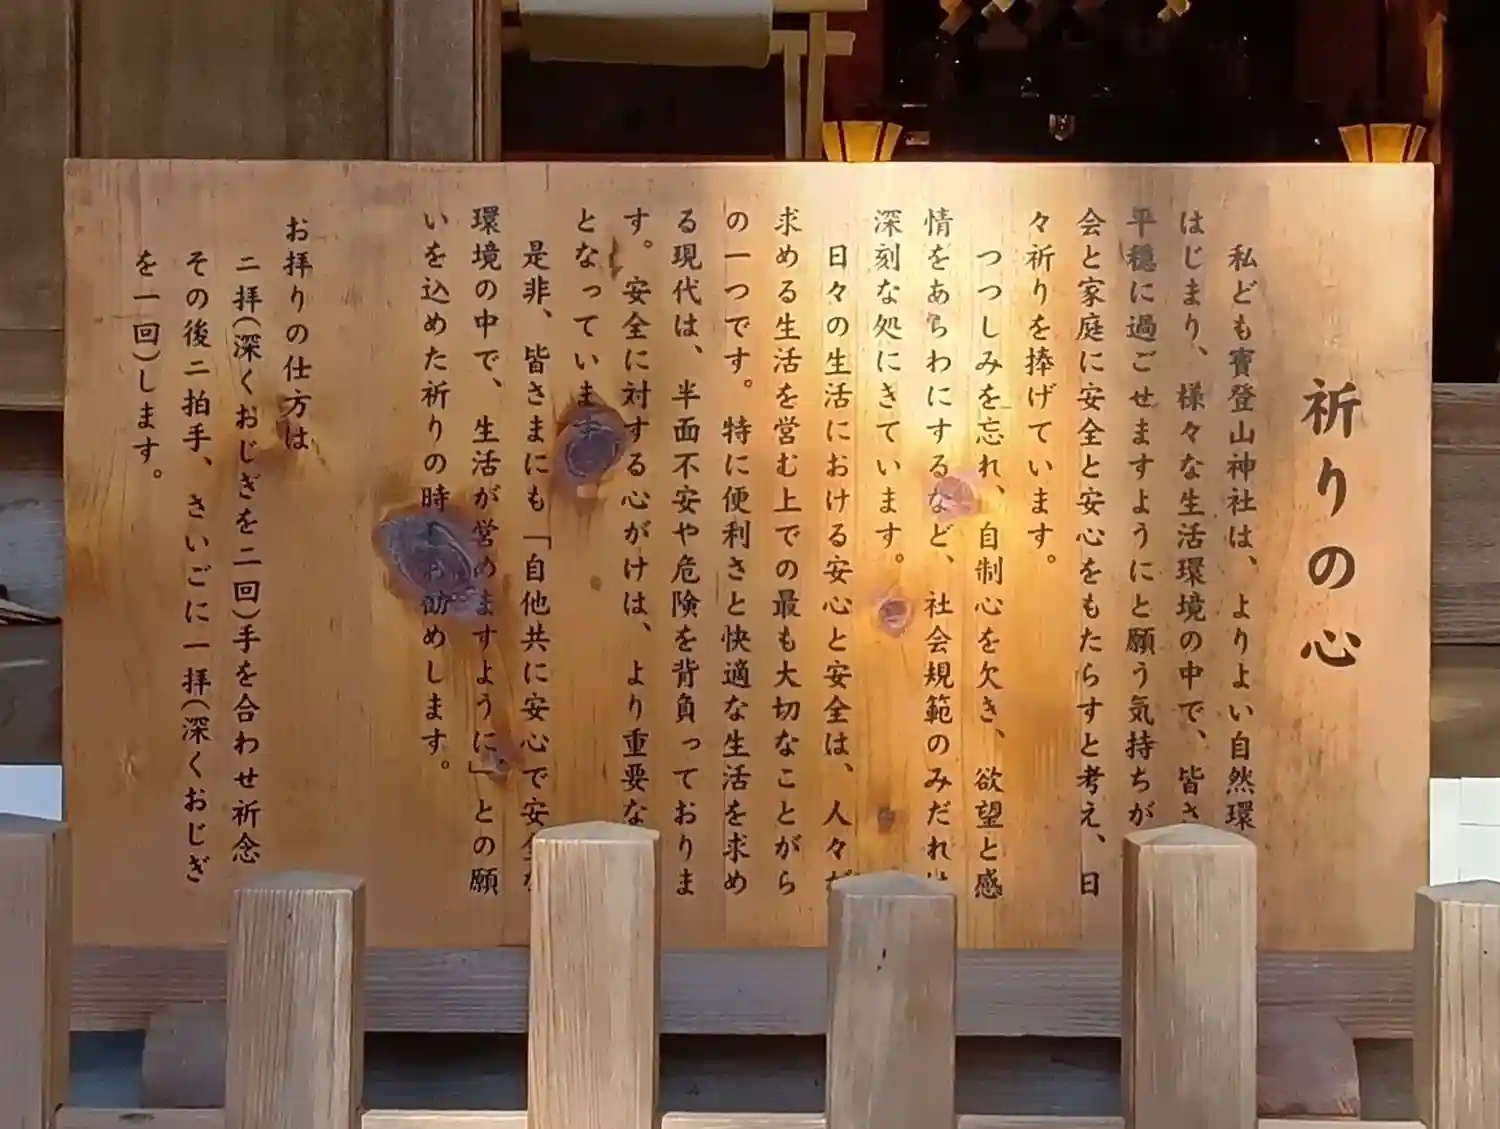 祈りの心
私ども寳登山神社は、よりよい自然環
はじまり、様々な生活環境の中で、皆さ
平穏に過ごせますようにと願う気持ちが
会と家庭に安全と安心をもたらすと考え、日
々祈りを捧げています。
つつしみを忘れ、自制心を欠き、欲望と感
情をあらわにするなど、社会規範のみだれは
深刻な処にきています。
日々の生活における安心と安全は、人々が
求める生活を営む上での最も大切なことがら
の一つです。特に便利さと快適な生活を求め
る現代は、半面不安や危険を背負っておりま
す。安全に対する心がけは、より重要な
となっています
是非、皆さまにも「自他共に安心で安全な
環境の中で、生活が営めますように」との願
いを込めた祈りの時をお勧めします。
お拝りの仕方は
二拝(深くおじぎを二回)手を合わせ祈念
その後二拍手、さいごに一拝(深くおじぎ
を一回)します。